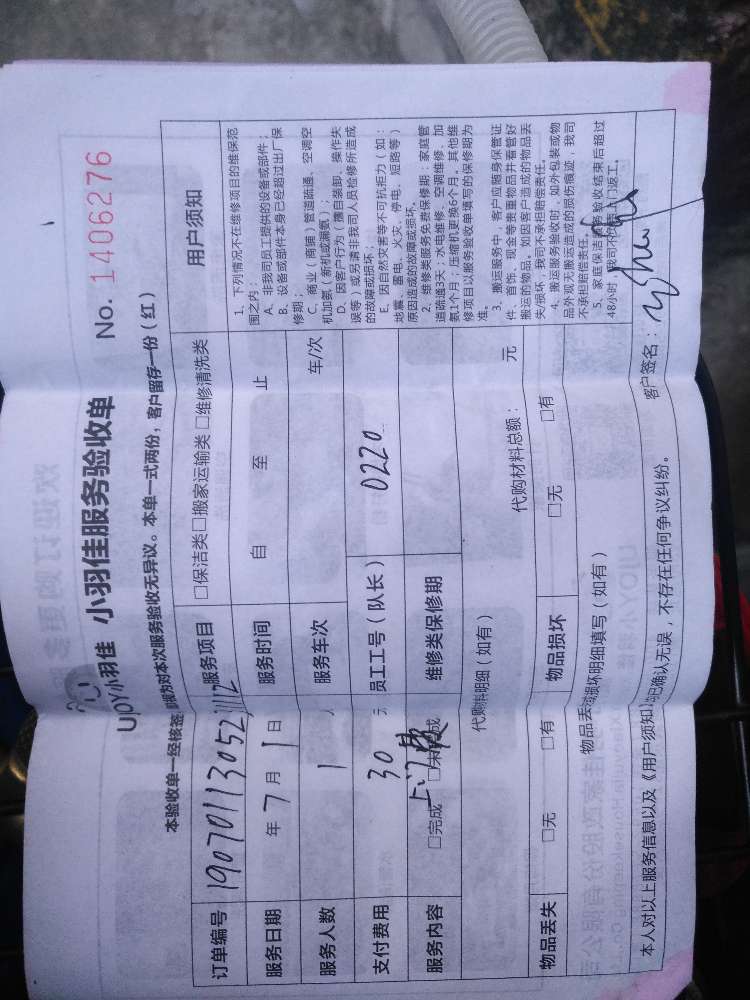 UpDY小羽佳 小羽佳服务验收单 No. 1406276
本验收单一经核签 即视为对本次服务验收无异议。本单一式两份，客户留存一份（红）
订单编号 服务项目 □保洁类□搬家运输类 □维修清洗类 用户须知
服务日期 年 7 月 1 日 服务时间 自 至 止
服务人数 1 人 服务车次 车/次
支付费用 30 元 员工工号（队长） 0220
服务内容 □完成 □未完成 上门费 维修类保修期
代购材料明细（如有） 代购材料总额： 元
物品丢失 □无 □有 物品损坏 □无 □有
物品丢失或损坏明细填写（如有）
1、下列情况不在维修项目的维保范
围之内：
A、非我司员工提供的设备或部件；
B、设备或部件本身已经超过出厂保
修期；
C、商业（商铺）管道疏通、空调空
机加氨（新机或漏氨）；
D、因客户行为（擅自装卸、操作失
误等）或另请非我司人员检修所造成
的故障或损坏；
E、因自然灾害等不可抗拒力（如：
地震、雷电、火灾、停电、短路等）
原因造成的故障或损坏。
2、维修类服务免费保修期：家庭管
道疏通3天；水电维修、空调维修、加
氨1个月；压缩机更换6个月。其他维
修项目以服务验收单填写的保修期为
准。
3、搬运服务中，客户应随身保管证
件、首饰、现金等贵重物品并看管好
搬运的物品。如因客户造成的物品丢
失/损坏，我司不承担赔偿责任。
4、搬运服务验收时，如外包装或物
品外观无搬运造成的损伤痕迹，我司
不承担赔偿责任。
5、家庭保洁服务验收结束后超过
48小时，我司不负责上门返工。
本人对以上服务信息以及《用户须知》均已确认无误，不存在任何争议纠纷。 客户签名：